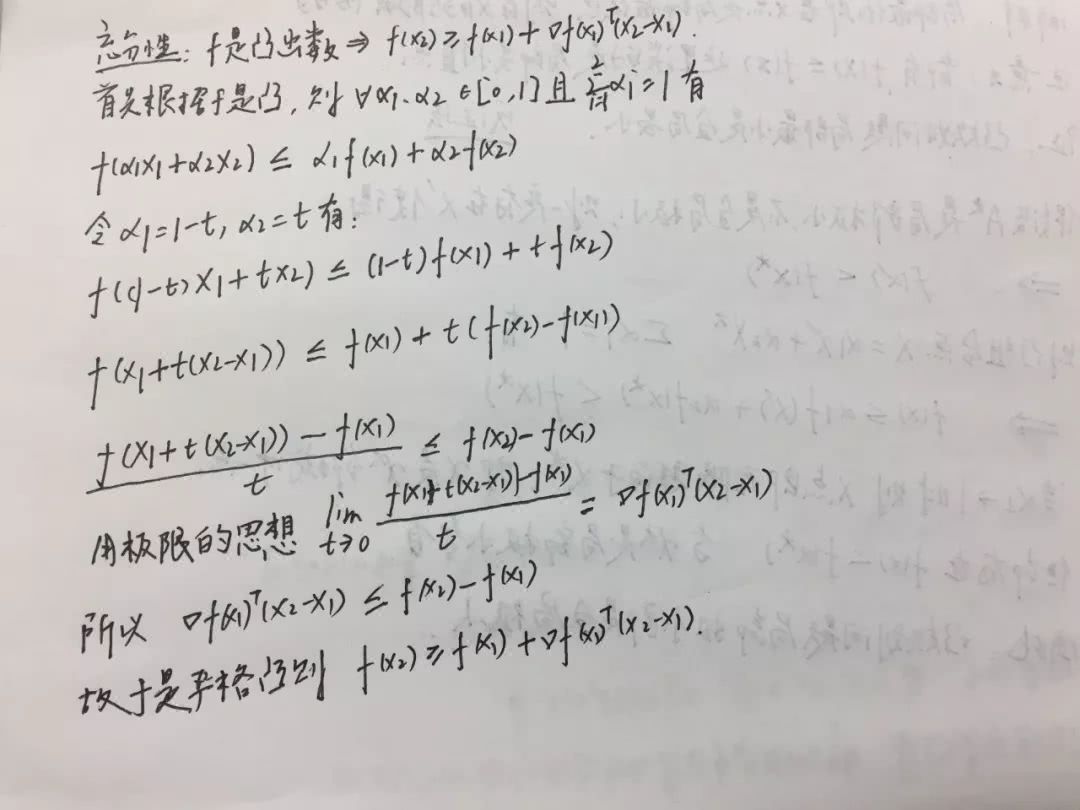 充分性: f是凸函数 ⇒ f(x₂) ≥ f(x₁) + ∇f(x₁)ᵀ(x₂-x₁).
首先根据f是凸, 则 ∀α₁、α₂ ∈ [0,1] 且 ∑²ᵢ₌₁ αᵢ = 1 有
f(α₁x₁+α₂x₂) ≤ α₁f(x₁) + α₂f(x₂)
令 α₁=1-t, α₂=t 有:
f((1-t)x₁+tx₂) ≤ (1-t)f(x₁) + tf(x₂)
f(x₁+t(x₂-x₁)) ≤ f(x₁) + t(f(x₂)-f(x₁))
f(x₁+t(x₂-x₁)) - f(x₁) / t ≤ f(x₂) - f(x₁)
用极限的思想 lim t→0 f(x₁+t(x₂-x₁))-f(x₁) / t = ∇f(x₁)ᵀ(x₂-x₁)
所以 ∇f(x₁)ᵀ(x₂-x₁) ≤ f(x₂)-f(x₁)
故f是严格凸则 f(x₂) ≥ f(x₁) + ∇f(x₁)ᵀ(x₂-x₁).